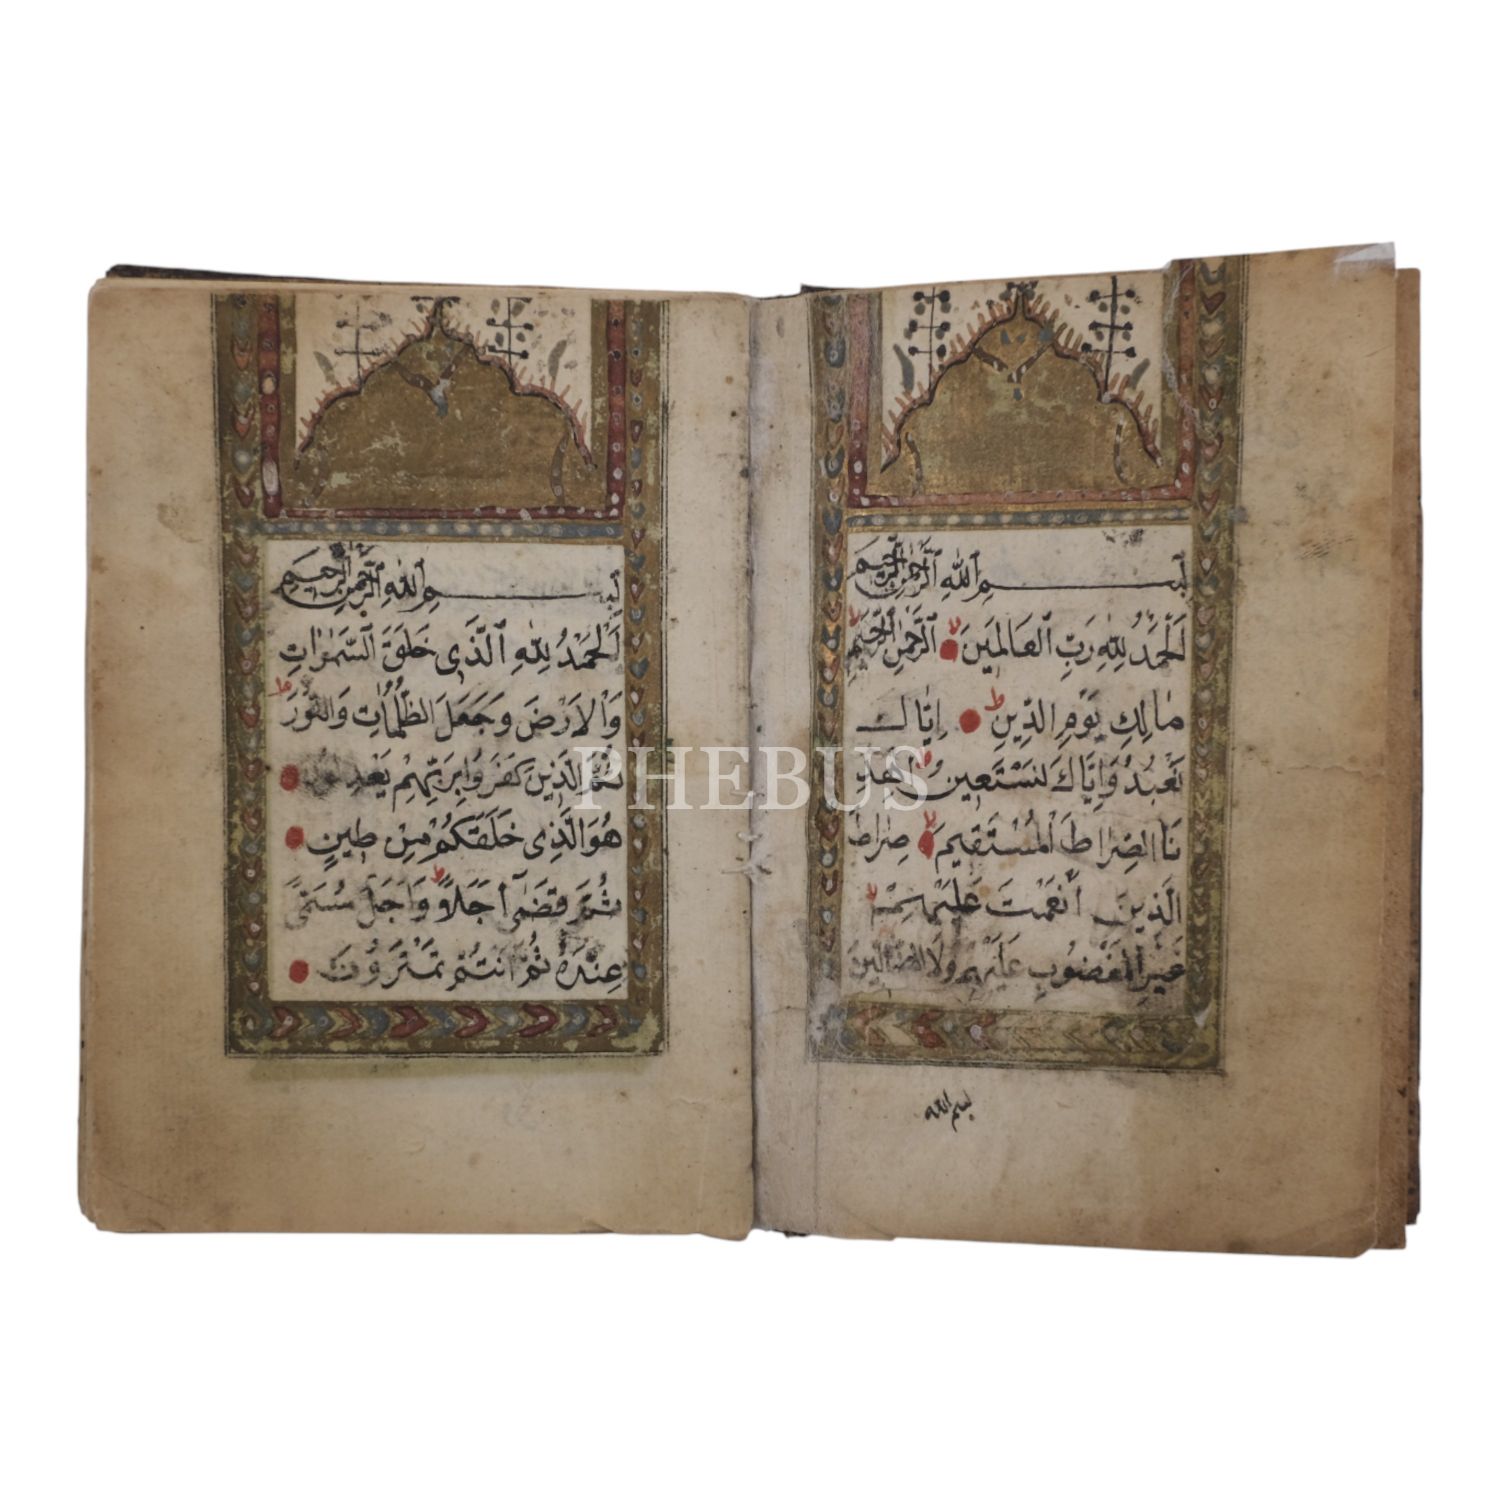 بسم الله الرحمن الرحيم
اَلْحَمْدُ لِلّٰهِ رَبِّ الْعَالَمِينَ لا الرَّحْمٰنِ الرَّحِيمِ لا
مَالِكِ يَوْمِ الدِّينِ ط اِيَّاكَ
نَعْبُدُ وَاِيَّاكَ نَسْتَعِينُ لا اِهْدِ
نَا الصِّرَاطَ الْمُسْتَقِيمَ لا صِرَاطَ
الَّذِينَ اَنْعَمْتَ عَلَيْهِمْ لا
غَيْرِ الْمَغْضُوبِ عَلَيْهِمْ وَلَا الضَّالِّينَ
بسم الله
بسم الله الرحمن الرحيم
اَلْحَمْدُ لِلّٰهِ الَّذِي خَلَقَ السَّمٰوَاتِ
وَالْاَرْضَ وَجَعَلَ الظُّلُمَاتِ وَالنُّورَ ط
ثُمَّ الَّذِينَ كَفَرُوا بِرَبِّهِمْ يَعْدِلُونَ
هُوَ الَّذِي خَلَقَكُمْ مِنْ طِينٍ
ثُمَّ قَضٰٓى اَجَلًا ط وَاَجَلٌ مُسَمًّى
عِنْدَهُ ثُمَّ اَنْتُمْ تَمْتَرُونَ
PHEBUS